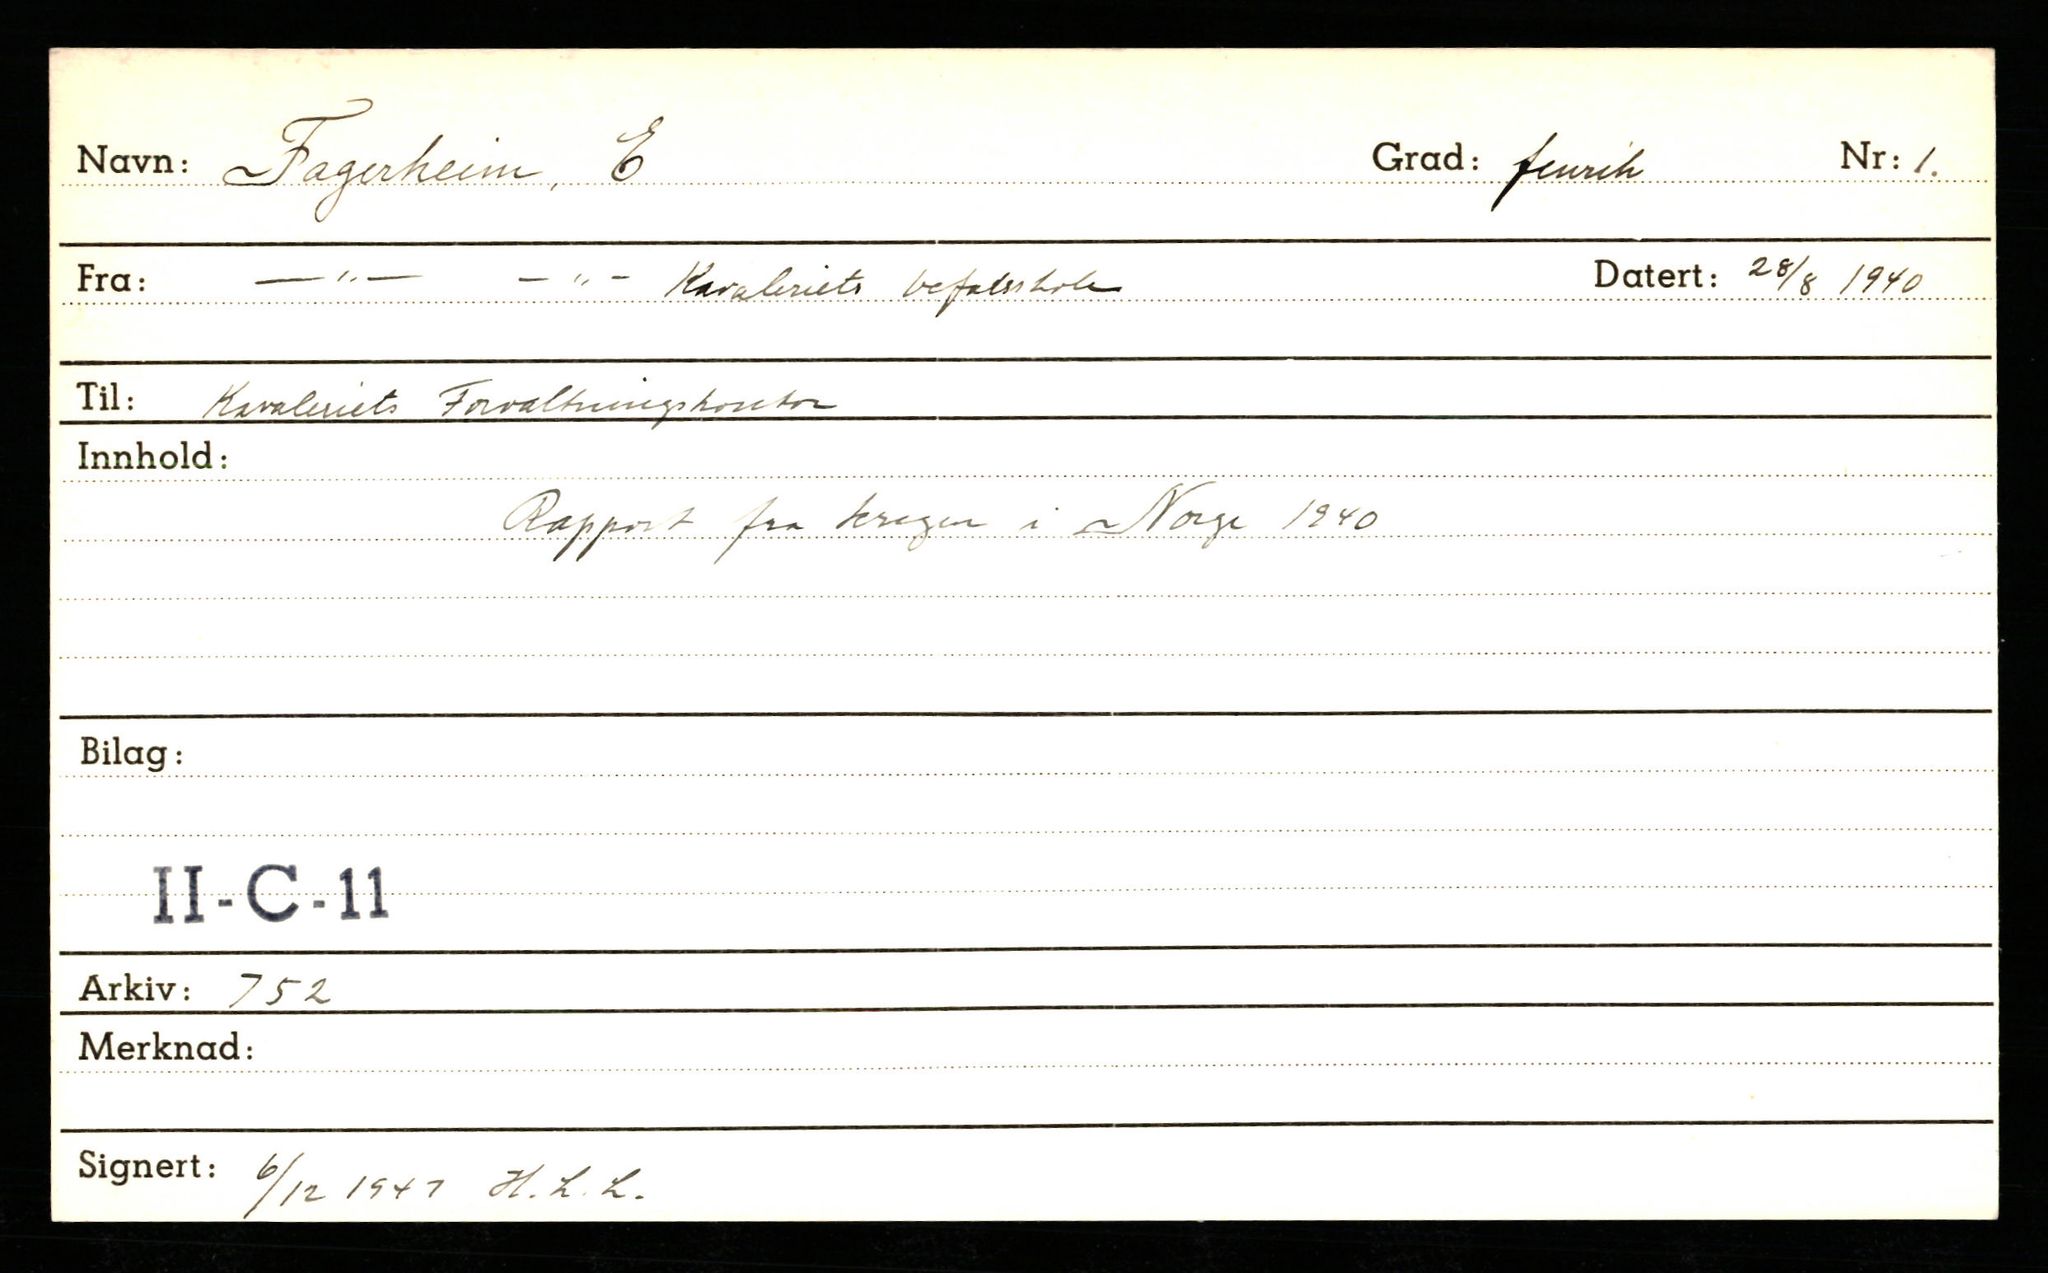 Navn: Fagerheim, E Grad: fenrik Nr: 1.
Fra: —"— -"- Kavaleriets befalsskole Datert: 28/8 1940
Til: Kavaleriets Forvaltningskontor
Innhold:
Rapport fra krigen i Norge 1940
Bilag:
II-C-11
Arkiv: 752
Merknad:
Signert: 6/12 1947 H.L.L.